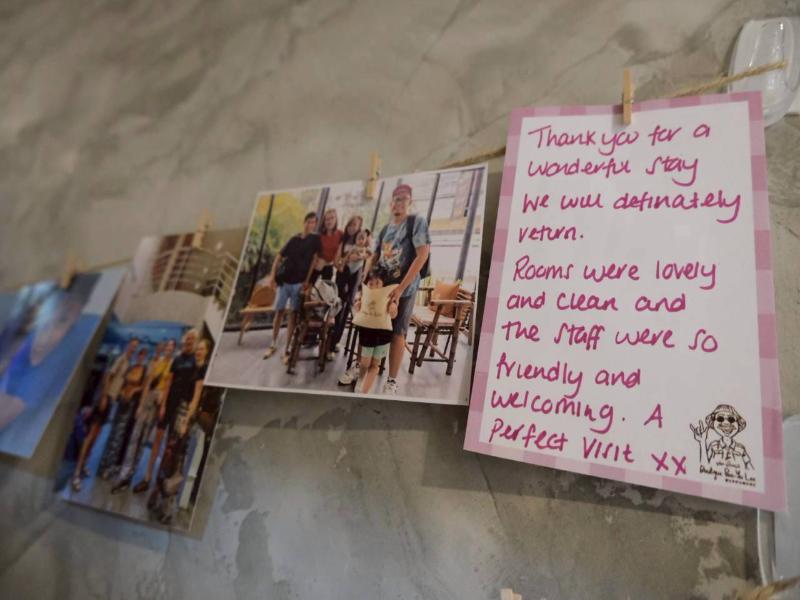 Thank you for a
wonderful stay
We will definately
return.
Rooms were lovely
and clean and
the staff were so
friendly and
welcoming. A
Perfect Visit xx